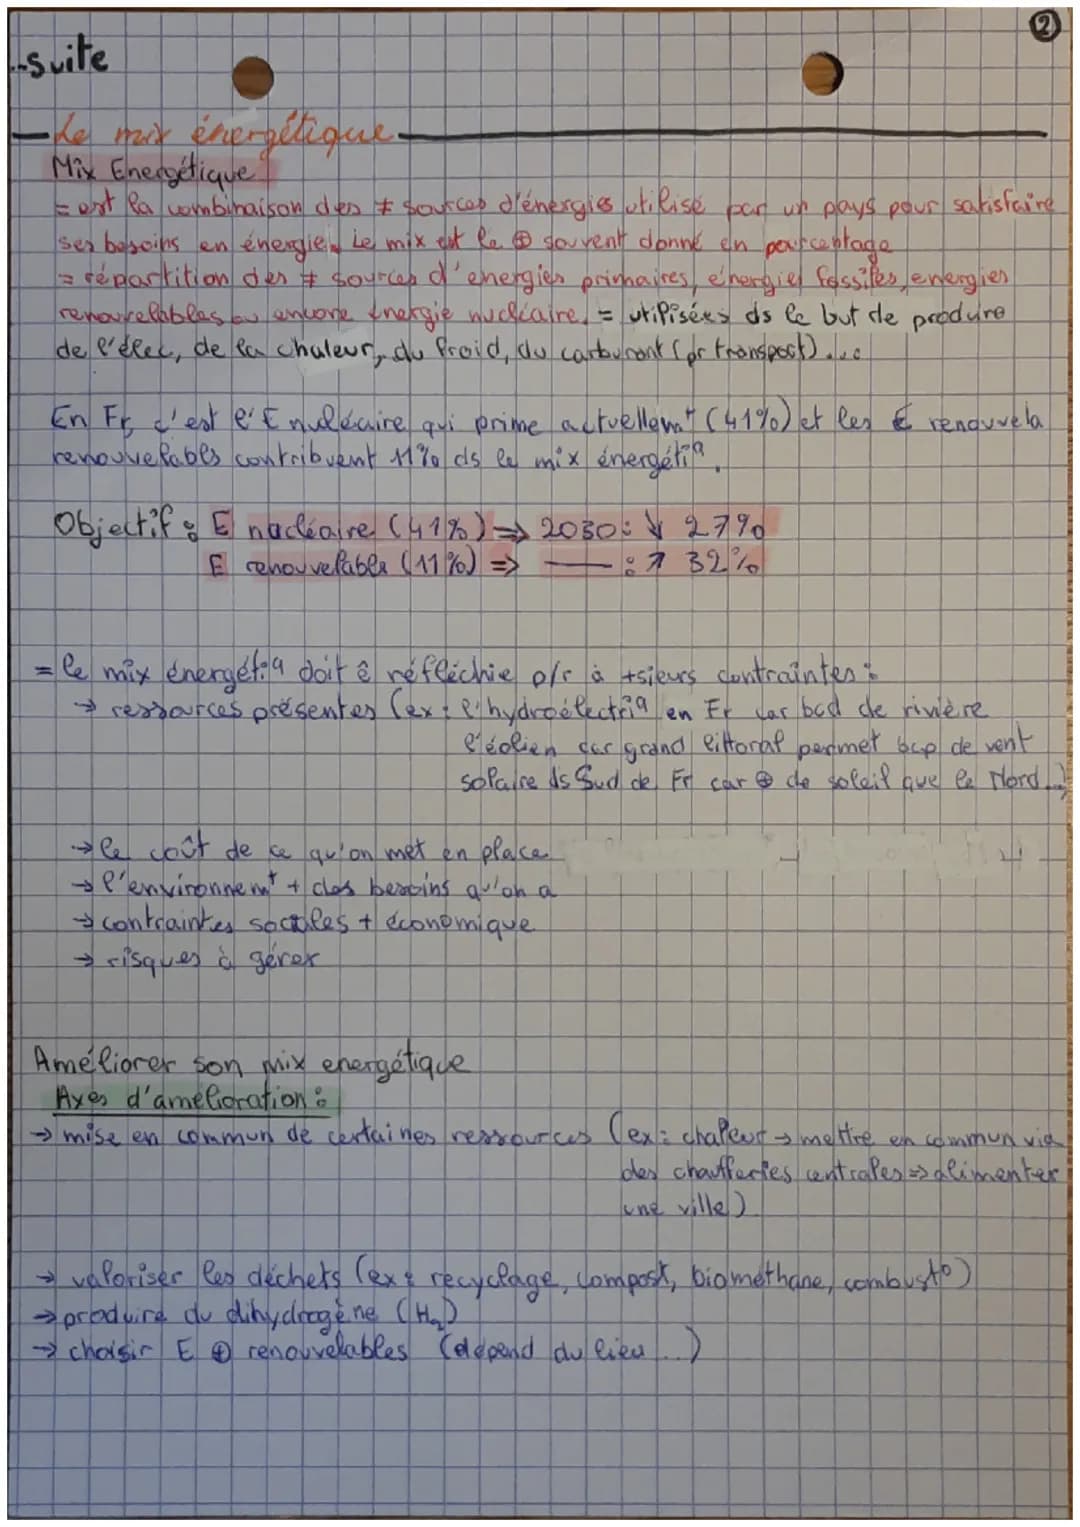 ②
...suite
Le mix énergétique
Mix Energétique
= est la combinaison des ≠ sources d'énergies utilisé par un pays pour satisfaire
ses besoins en énergie. Le mix est le ⊕ souvent donné en pourcentage
= répartition des ≠ sources d'énergies primaires, énergies fossiles, energies
renouvelables ou encore énergie nucléaire. = utilisées ds le but de produire
de l'élec, de la chaleur, du froid, du carburant (pr transport)...
En Fr, c'est l'E nuléaire qui prime actuellemt (41%) et les E renouvela
renouvelables contribuent 11% ds le mix énergétiq.
Objectif : E nucléaire (41%) ⇒ 2030: ↓ 27%
E renouvelable (11%) ⇒ — : ↗ 32%
= le mix énergétiq doit ê réfléchie p/r à +sieurs contraintes :
→ ressources présentes (ex : l'hydroélectriq en Fr car bcd de rivière
l'éolien car grand littoral permet bcp de vent
solaire ds Sud de Fr car ⊕ de soleil que le Nord...)
→ le coût de ce qu'on met en place
→ l'environnemt + des besoins qu'on a
→ contraintes sociales + économique
→ risques à gérer
Améliorer son mix energétique
Axes d'amélioration :
→ mise en commun de certaines ressources (ex : chaleur → mettre en commun via
des chaufferies centrales ⇒ alimenter
une ville)
→ valoriser les déchets (ex : recyclage, compost, biométhane, combust°)
→ produire du dihydrogène (H₂)
→ choisir E ⊕ renouvelables (dépend du lieu...)